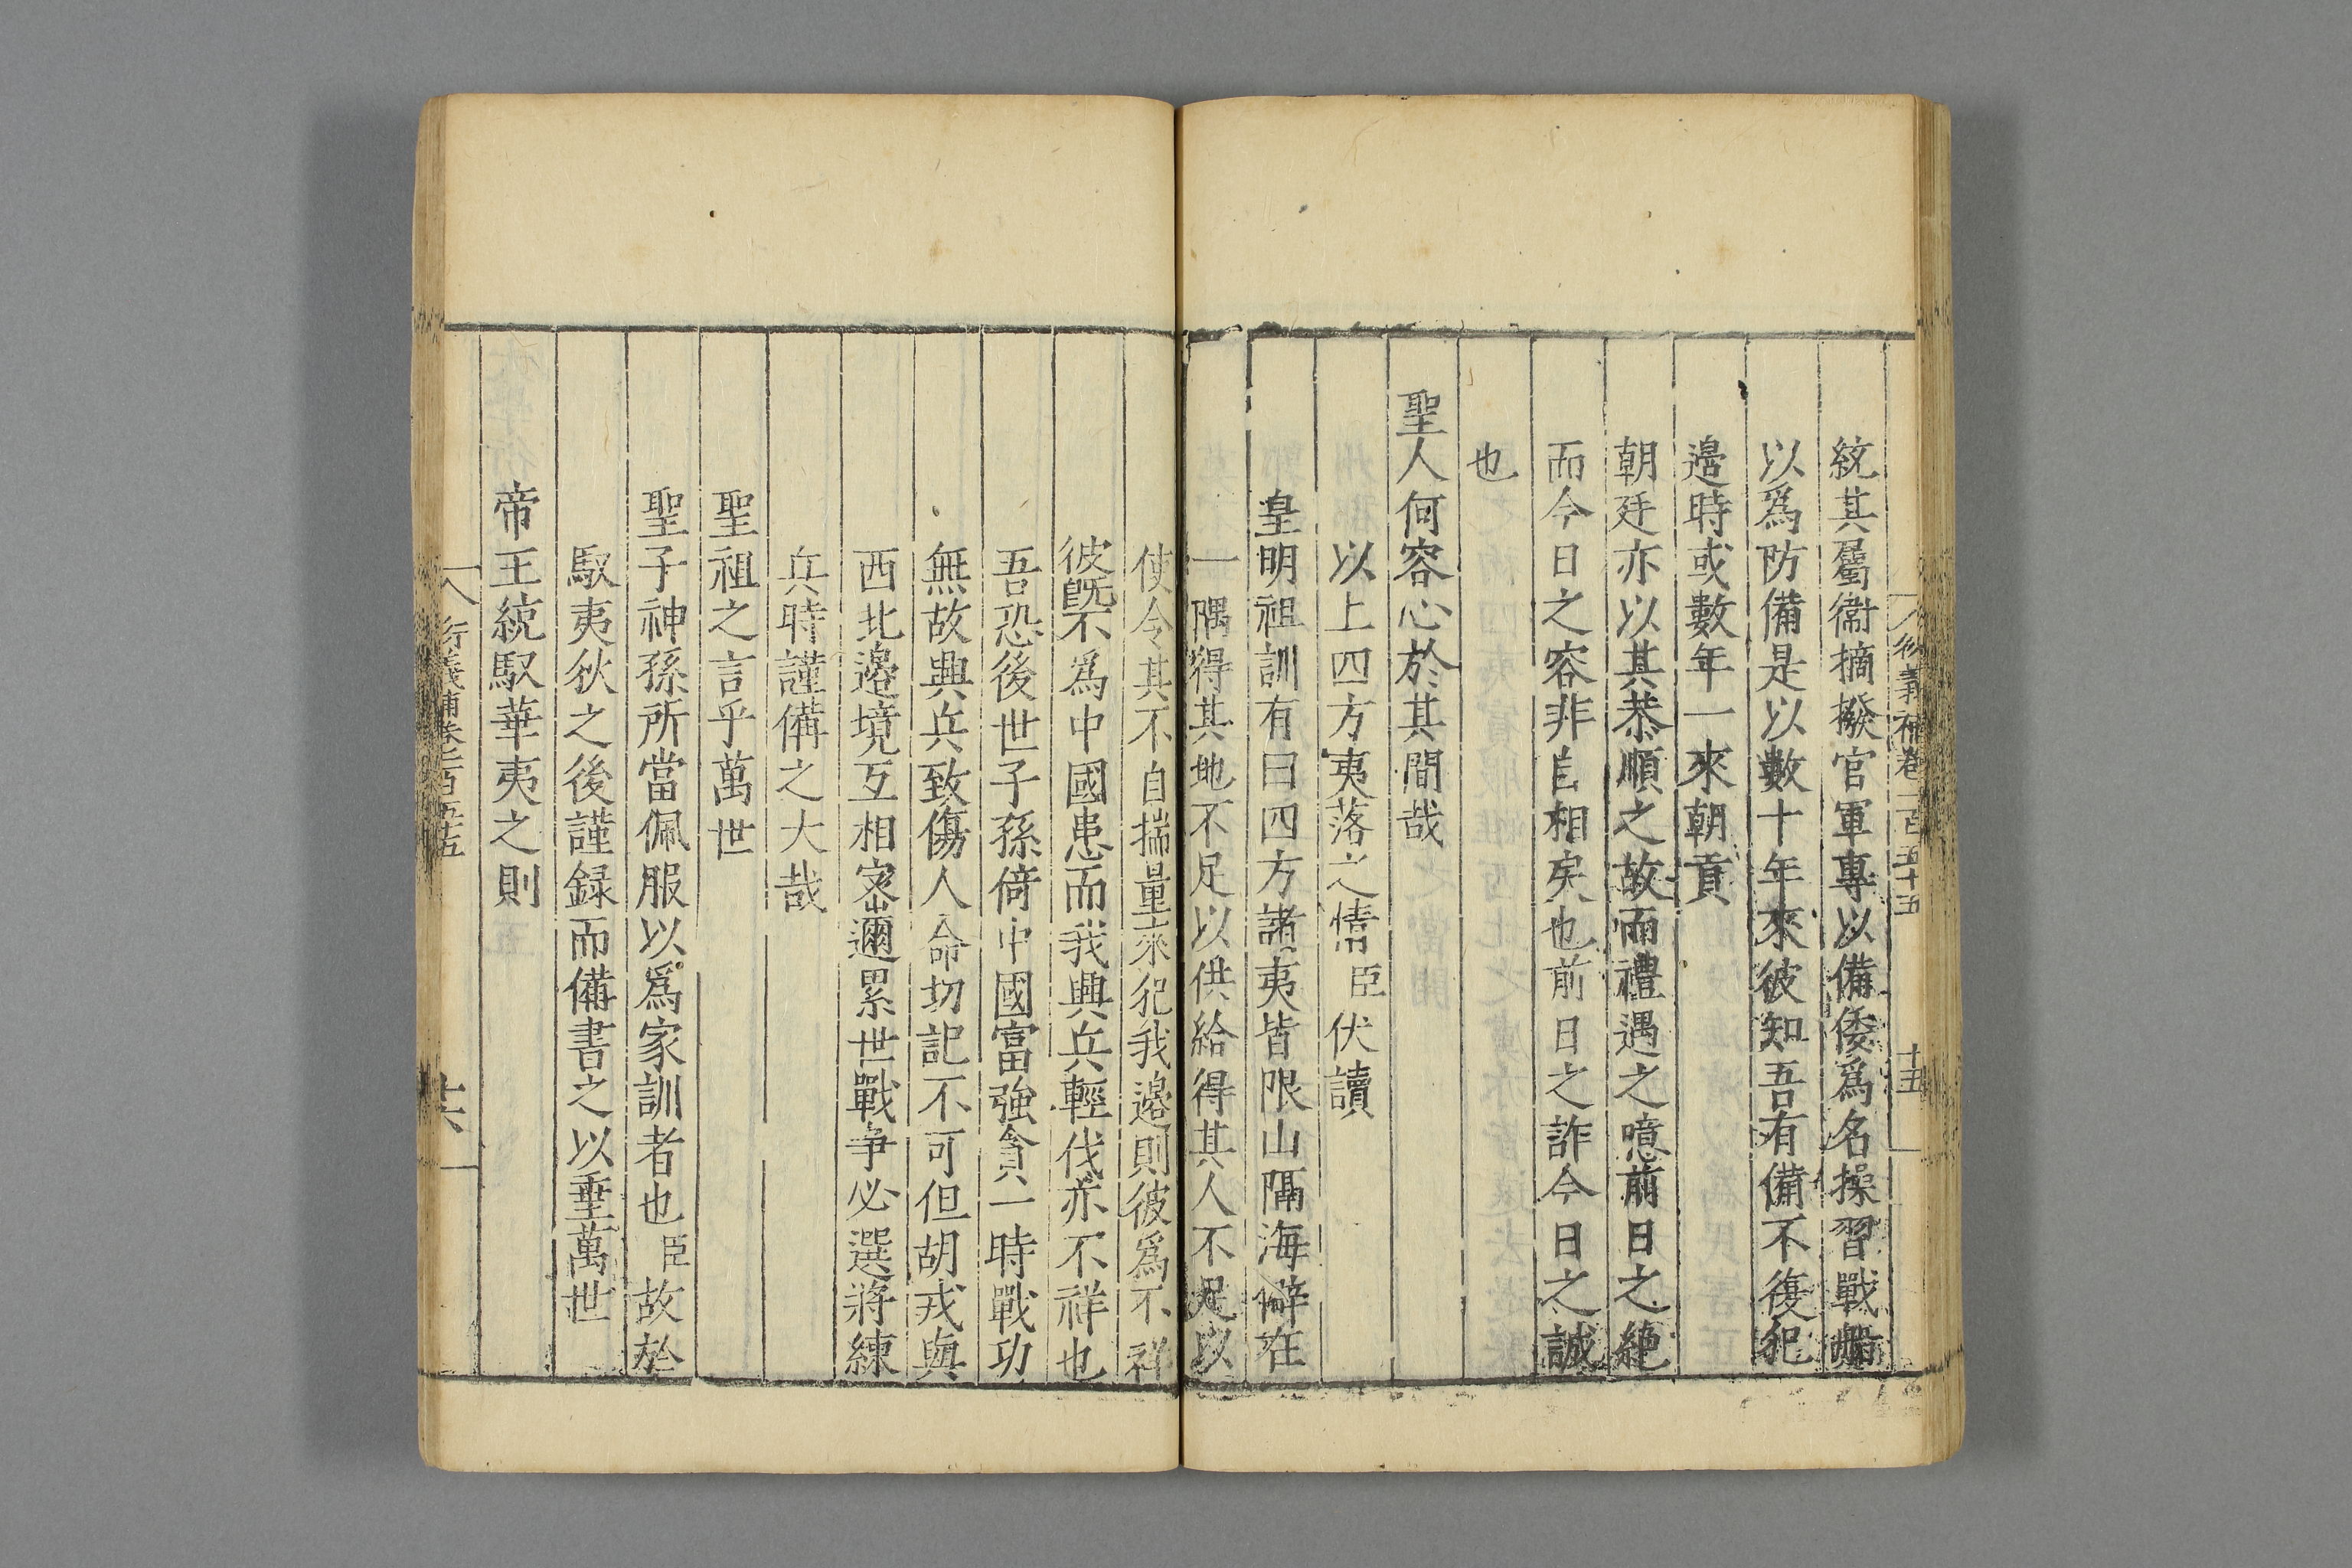 衍義補卷一百五十五 十五
統其屬衞摘撥官軍專以備倭爲名操習戰船
以爲防備是以數十年來彼知吾有備不復犯
邊時或數年一來朝貢
朝廷亦以其恭順之故而禮遇之噫前日之絶
而今日之容非自相矣也前日之詐今日之誠
也
聖人何容心於其間哉
以上四方夷落之情臣伏讀
皇明祖訓有曰四方諸夷皆限山隔海僻在
一隅得其地不足以供給得其人不足以
使令其不自揣量來犯我邊則彼爲不祥
彼旣不爲中國患而我興兵輕伐亦不祥也
吾恐後世子孫倚中國富強貪一時戰功
無故興兵致傷人命切記不可但胡戎與
西北邊境互相密邇累世戰争必選將練
兵時謹備之大哉
聖祖之言乎萬世
聖子神孫所當佩服以爲家訓者也臣故於
馭夷狄之後謹録而備書之以垂萬世
帝王統馭華夷之則
衍義補卷一百五十五 十六